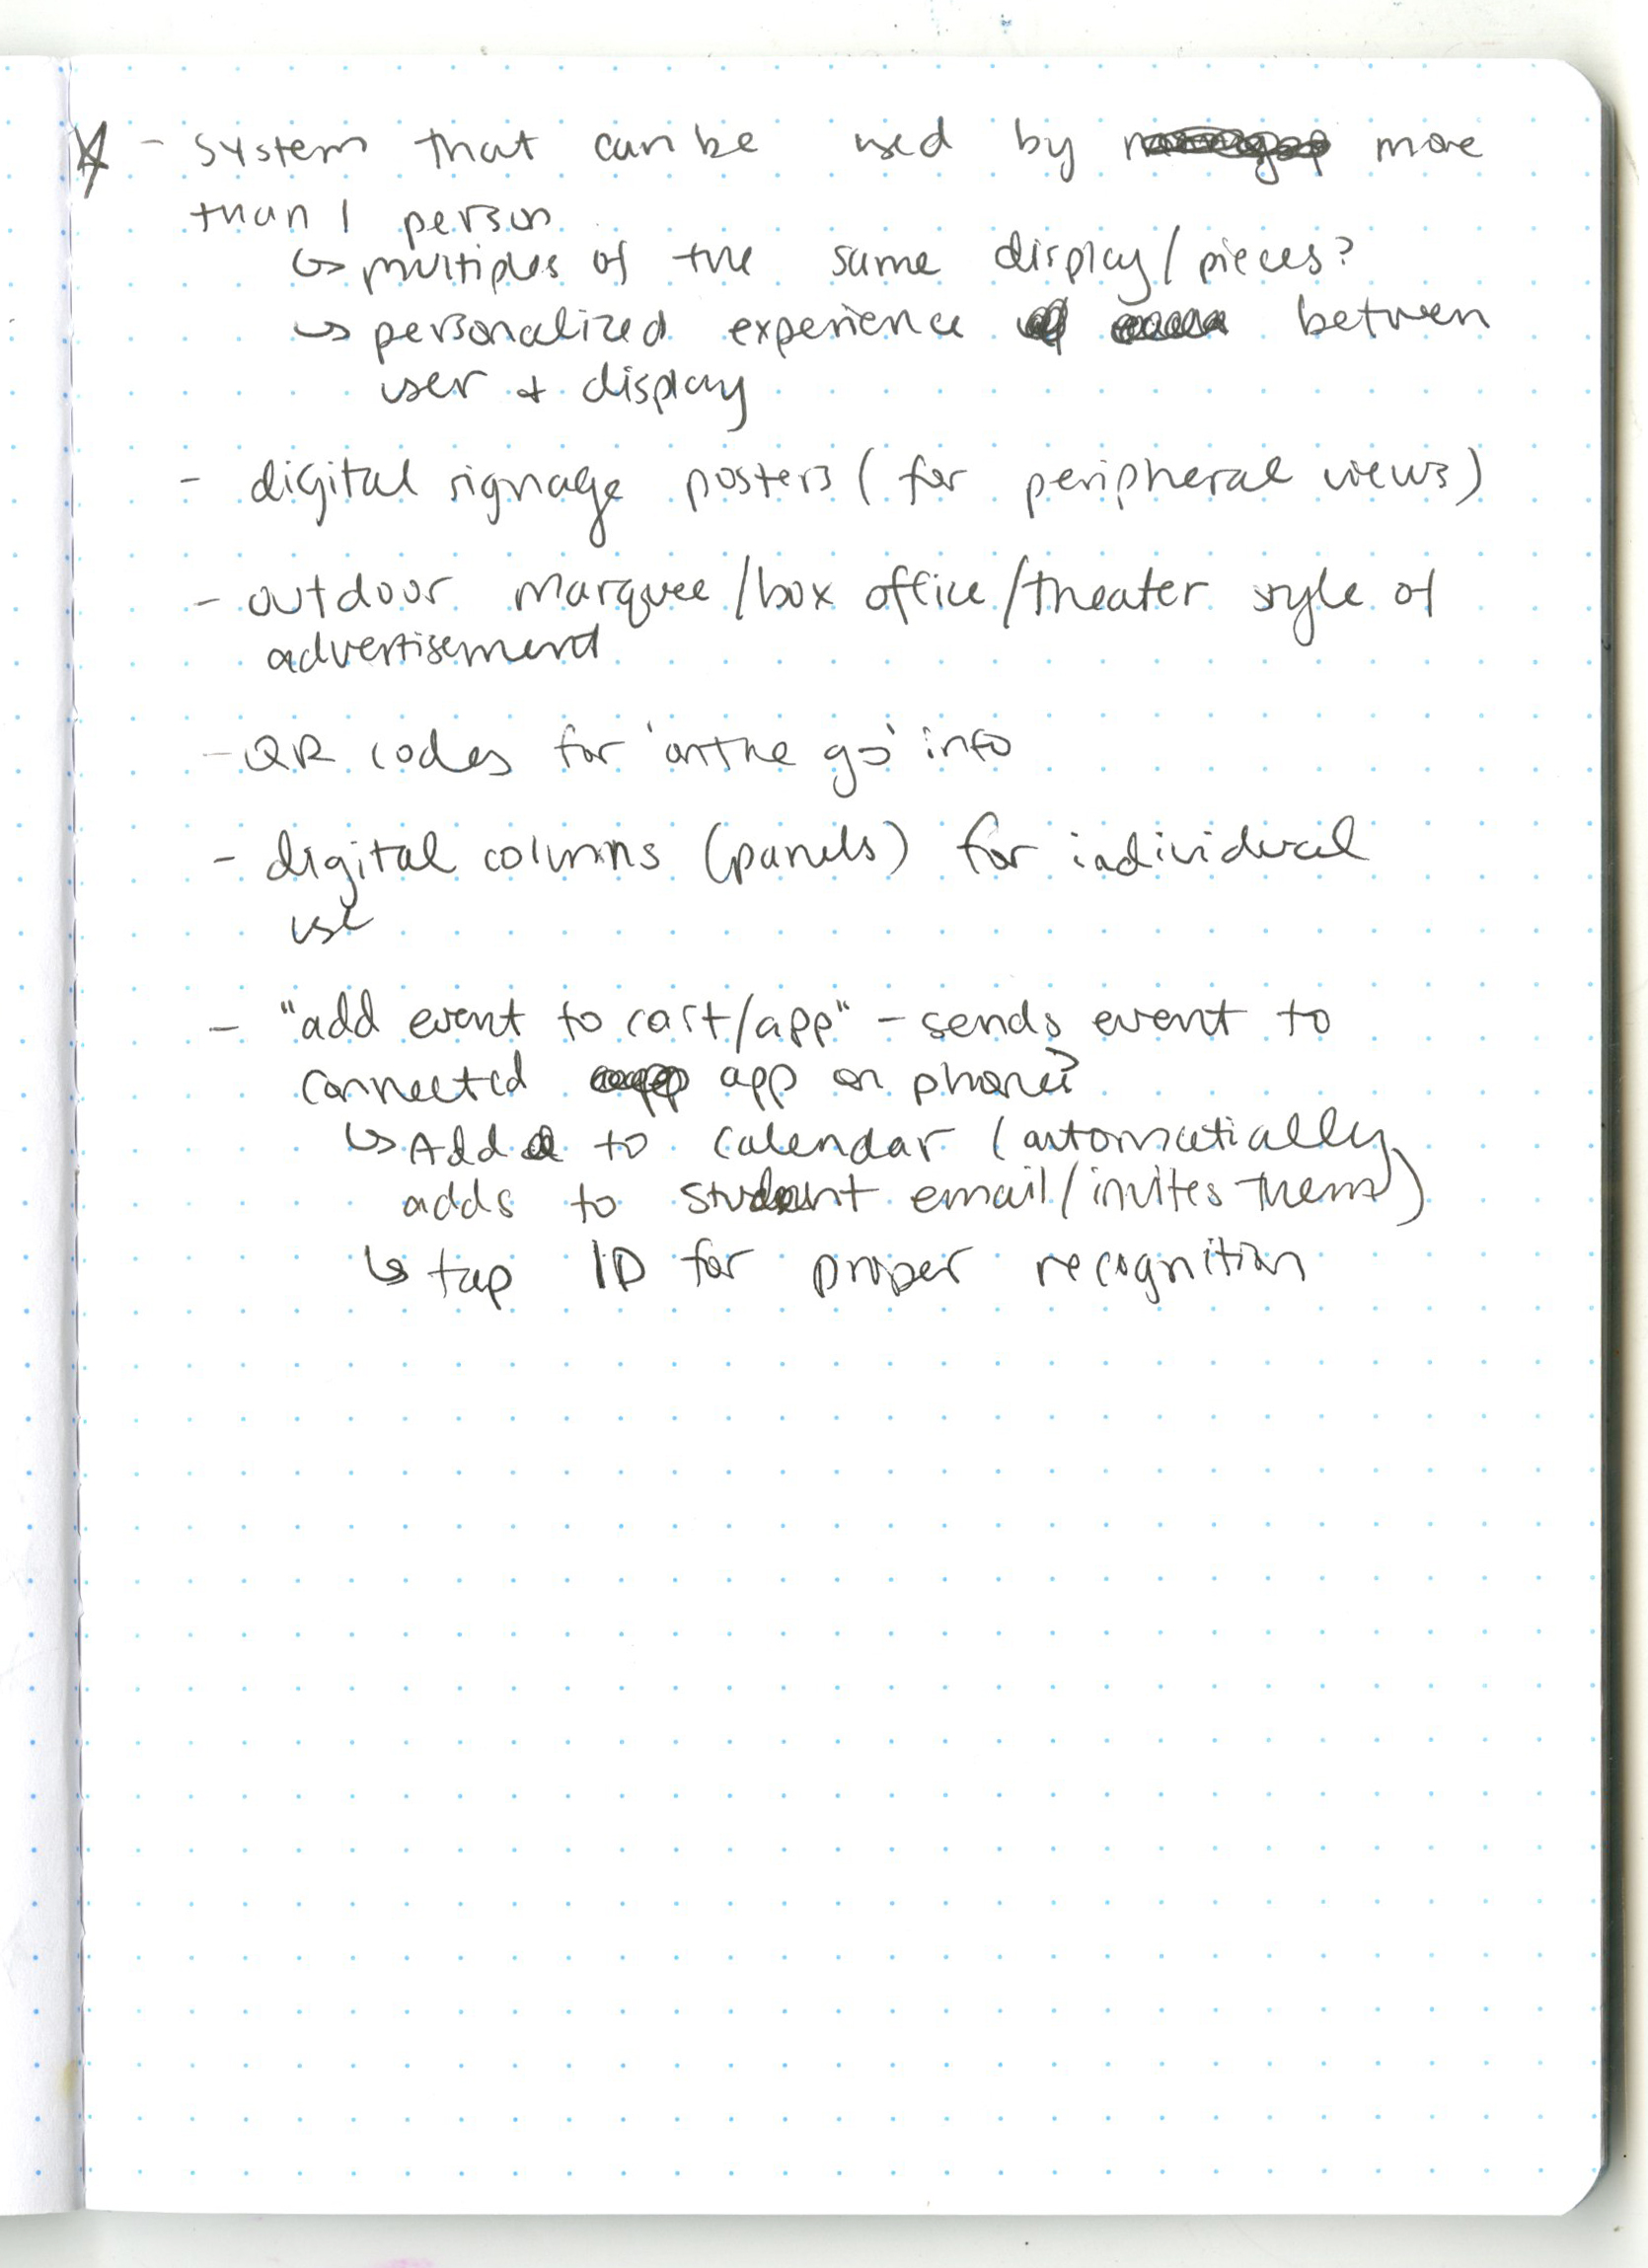 - system that can be used by more
than 1 person
↳ multiples of the same display/pieces?
↳ personalized experience between
user + display
- digital signage posters (for peripheral views)
- outdoor marquee/box office/theater style of
advertisement
- QR codes for 'on the go' info
- digital columns (panels) for individual
use
- "add event to cart/app" - sends event to
connected app on phone?
↳ Add to calendar (automatically
adds to student email/invites them)
↳ tap ID for proper recognition